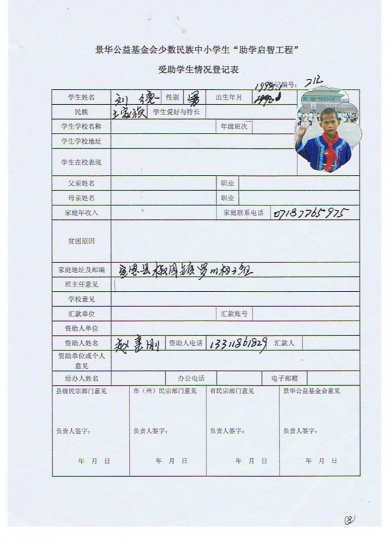 景华公益基金会少数民族中小学生“助学启智工程”
受助学生情况登记表
编号：212
学生姓名 刘 性别 男 出生年月
民族 土家族 学生爱好与特长
学生学校名称 年级班次
学生学校地址
学生在校表现
父亲姓名 职业
母亲姓名 职业
家庭年收入 家庭联系电话 07187765975
贫困原因
家庭地址及邮编
班主任意见
学校意见
汇款单位 汇款账号
资助人单位
资助人姓名 资助人电话 13311861829 汇款人
资助单位或个人
意见
经办人姓名 办公电话 电子邮箱
县级民宗部门意见 市（州）民宗部门意见 省民宗部门意见 景华公益基金会意见
负责人签字： 负责人签字： 负责人签字： 负责人签字：
年 月 日 年 月 日 年 月 日 年 月 日